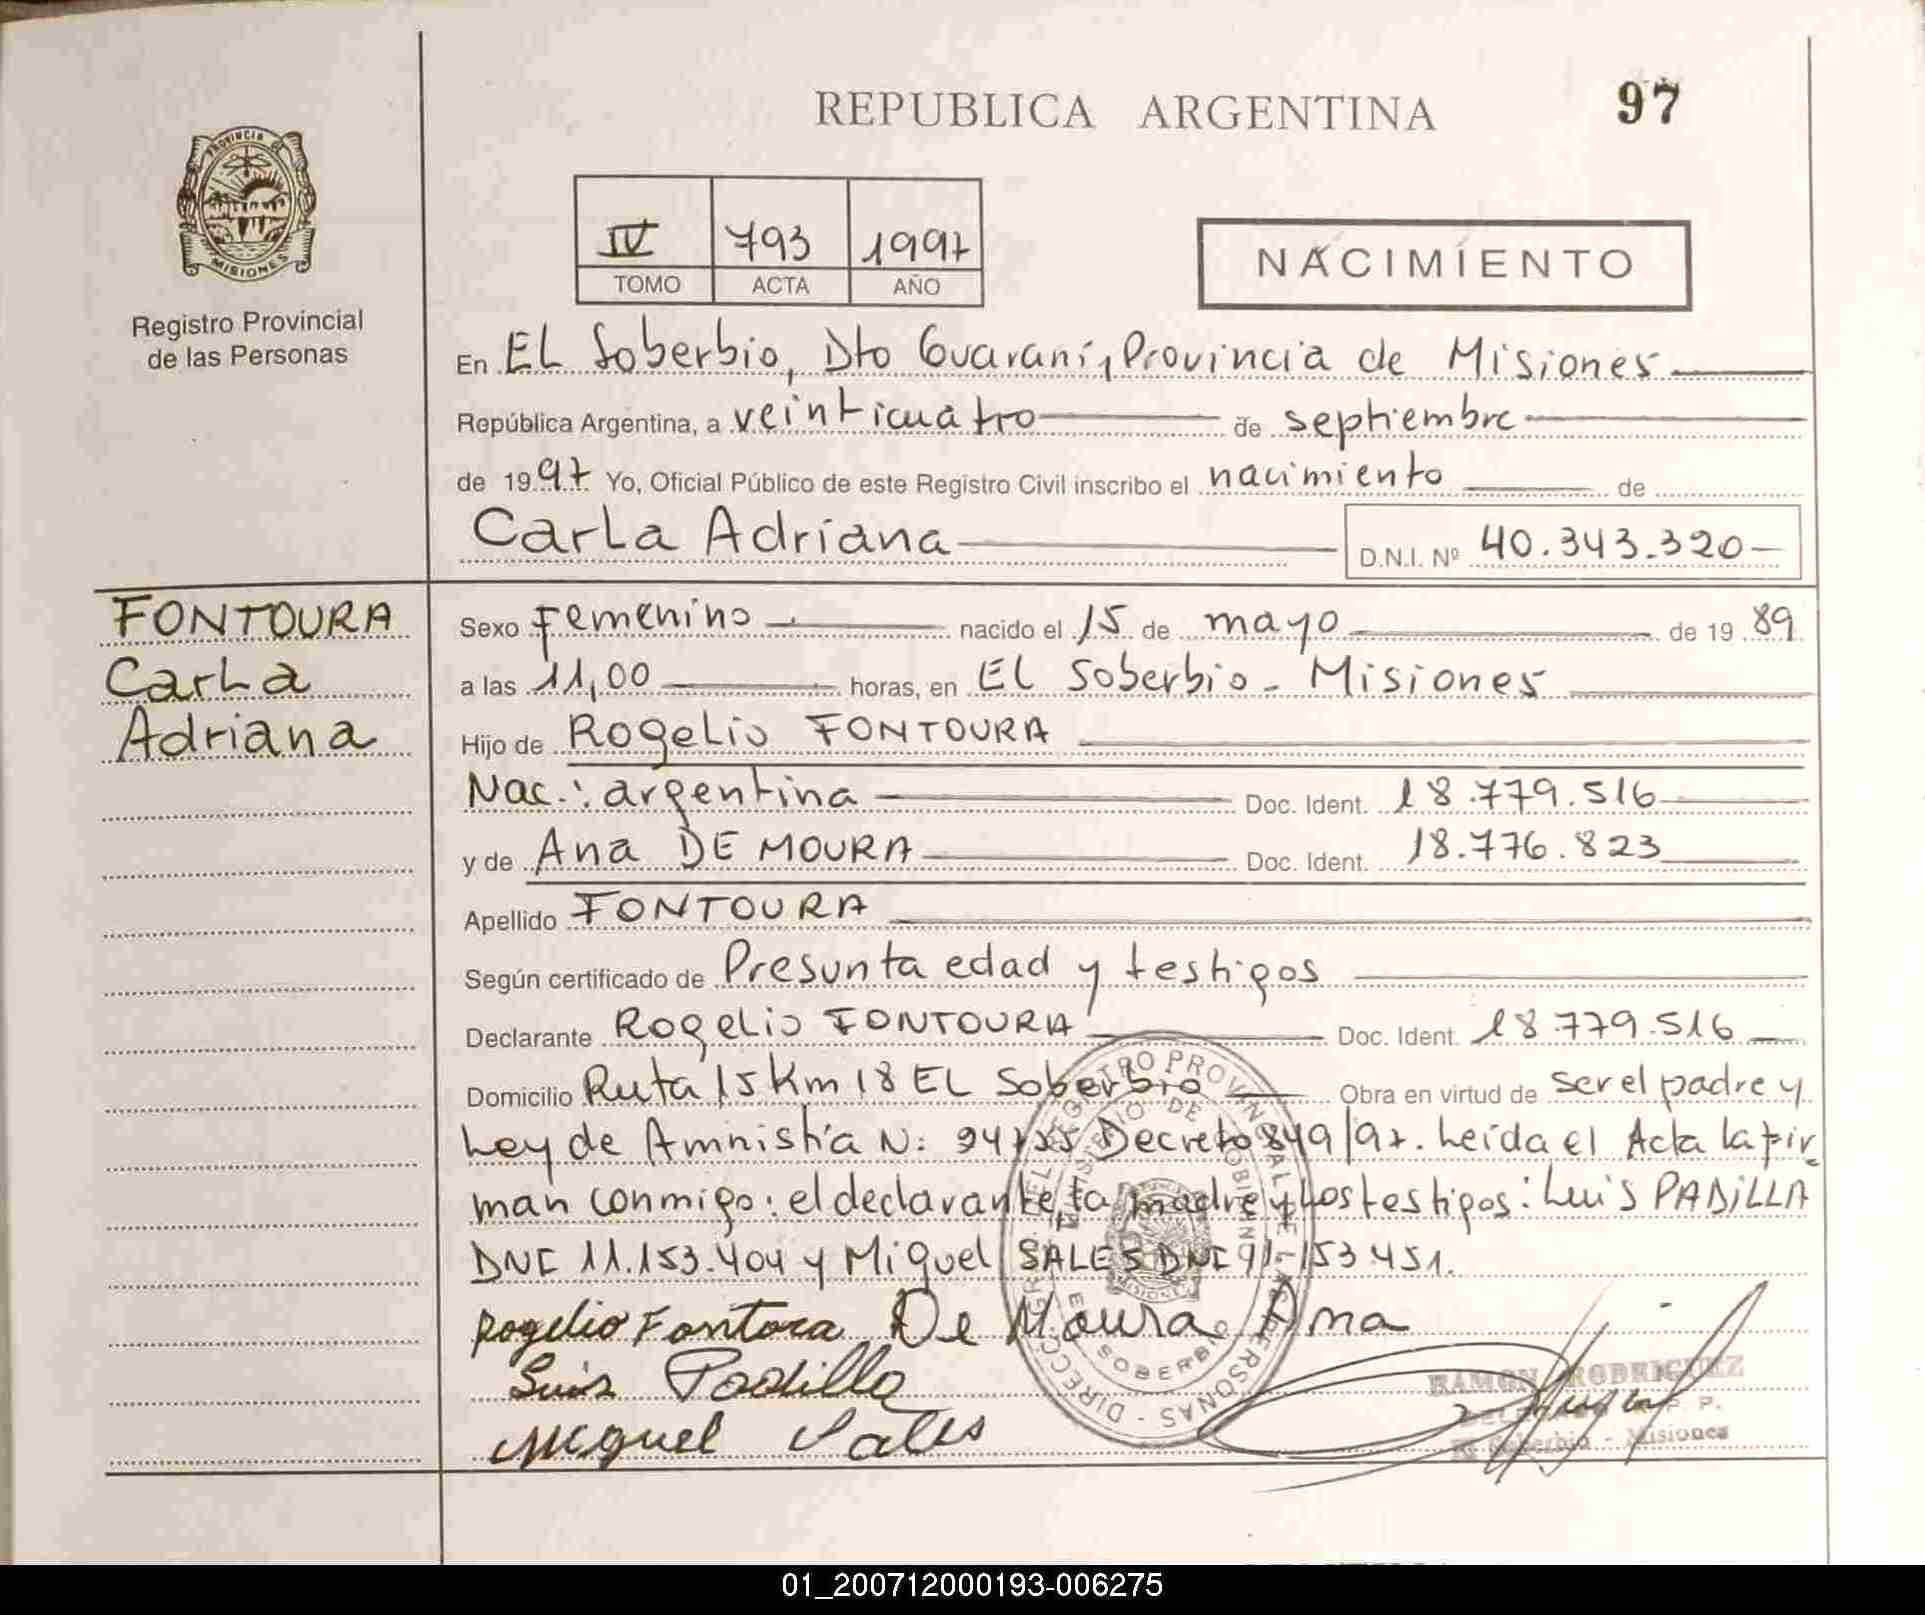 REPUBLICA ARGENTINA
97
PROVINCIA DE
MISIONES
Registro Provincial
de las Personas
IV 793 1997
TOMO ACTA AÑO
NACIMIENTO
En EL Soberbio, Dto Guaraní, Provincia de Misiones
República Argentina, a veinticuatro de septiembre
de 1997 Yo, Oficial Público de este Registro Civil inscribo el nacimiento de
Carla Adriana D.N.I. Nº 40.343.320
FONTOURA
Carla
Adriana
Sexo Femenino nacido el 15 de mayo de 1989
a las 11,00 horas, en El Soberbio - Misiones
Hijo de Rogelio FONTOURA
Nac.: argentina Doc. Ident. 18.779.516
y de Ana DE MOURA Doc. Ident. 18.776.823
Apellido FONTOURA
Según certificado de Presunta edad y testigos
Declarante Rogelio FONTOURA Doc. Ident. 18.779.516
Domicilio Ruta 15 Km 18 EL Soberbio Obra en virtud de ser el padre y
Ley de Amnistía N: Decreto 849/97. Leída el Acta la fir
man conmigo: el declarante, la madre y los testigos: Luis PADiLLA
DNI 11.153.404 y Miguel SALES DNI 11.153.451.
Rogelio Fontora De Moura Ana
Luis Padilla
Miguel Sales
RAMON RODRIGUEZ
El Soberbio - Misiones
DIRECCION REGISTRO PROVINCIAL DE LAS PERSONAS
MINISTERIO DE GOBIERNO
EL SOBERBIO
01_200712000193-006275